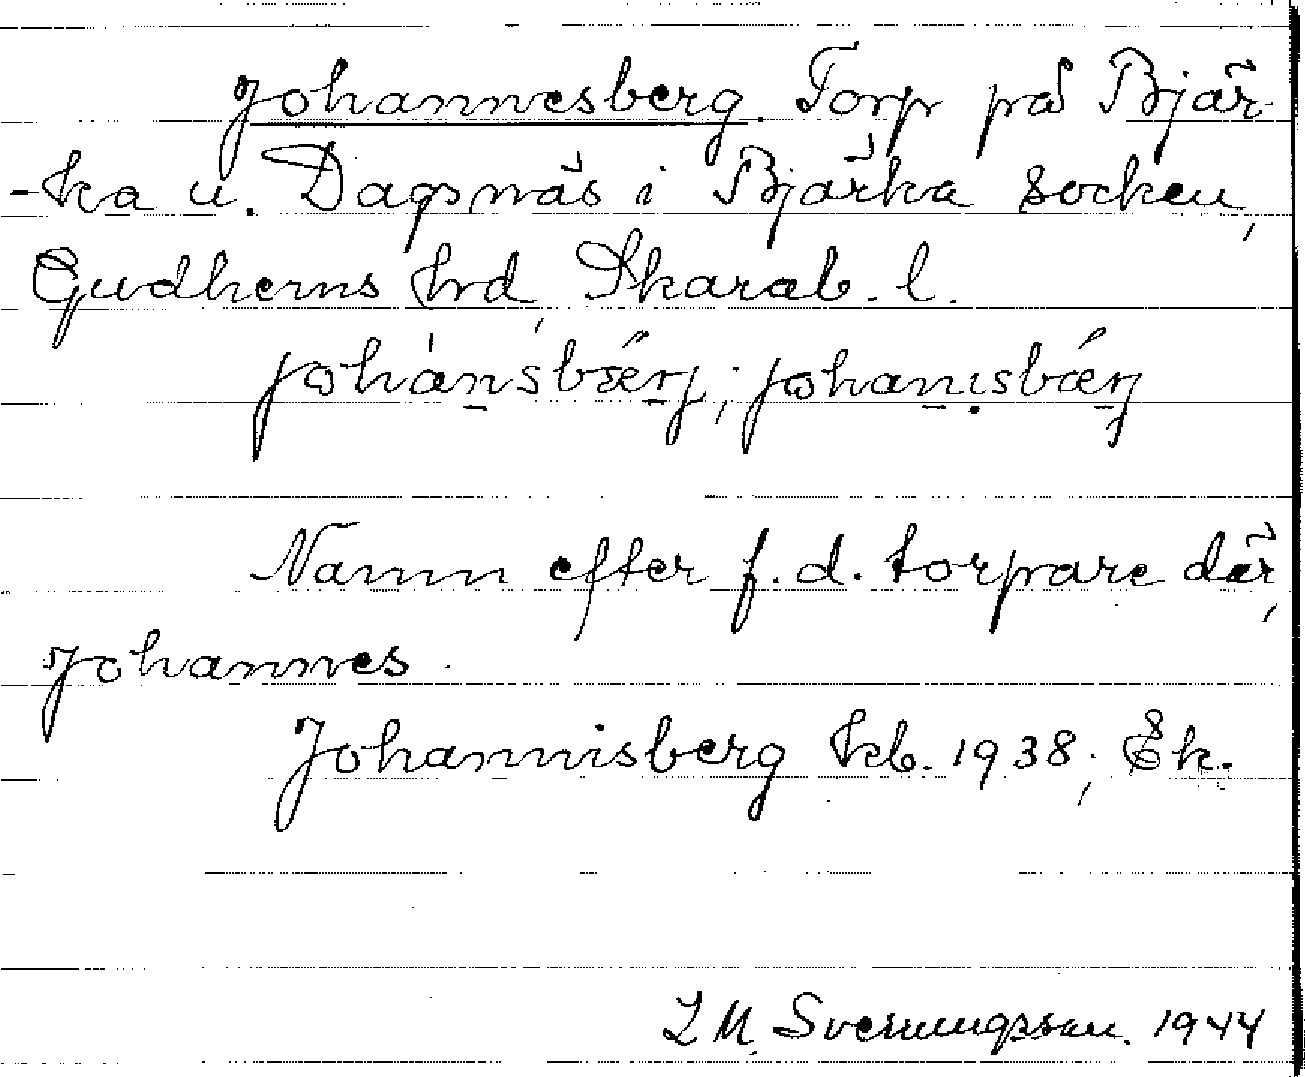 Johannesberg. Torp på Bjär-
-ka u. Dagsnäs i Bjärka socken,
Gudhems hrd, Skarab. l.
johánsbǽrj; johanisbǽrj
Namn efter f. d. torpare där,
Johannes.
Johannisberg kb. 1938; Ek.
L M. Svenungsson. 1944